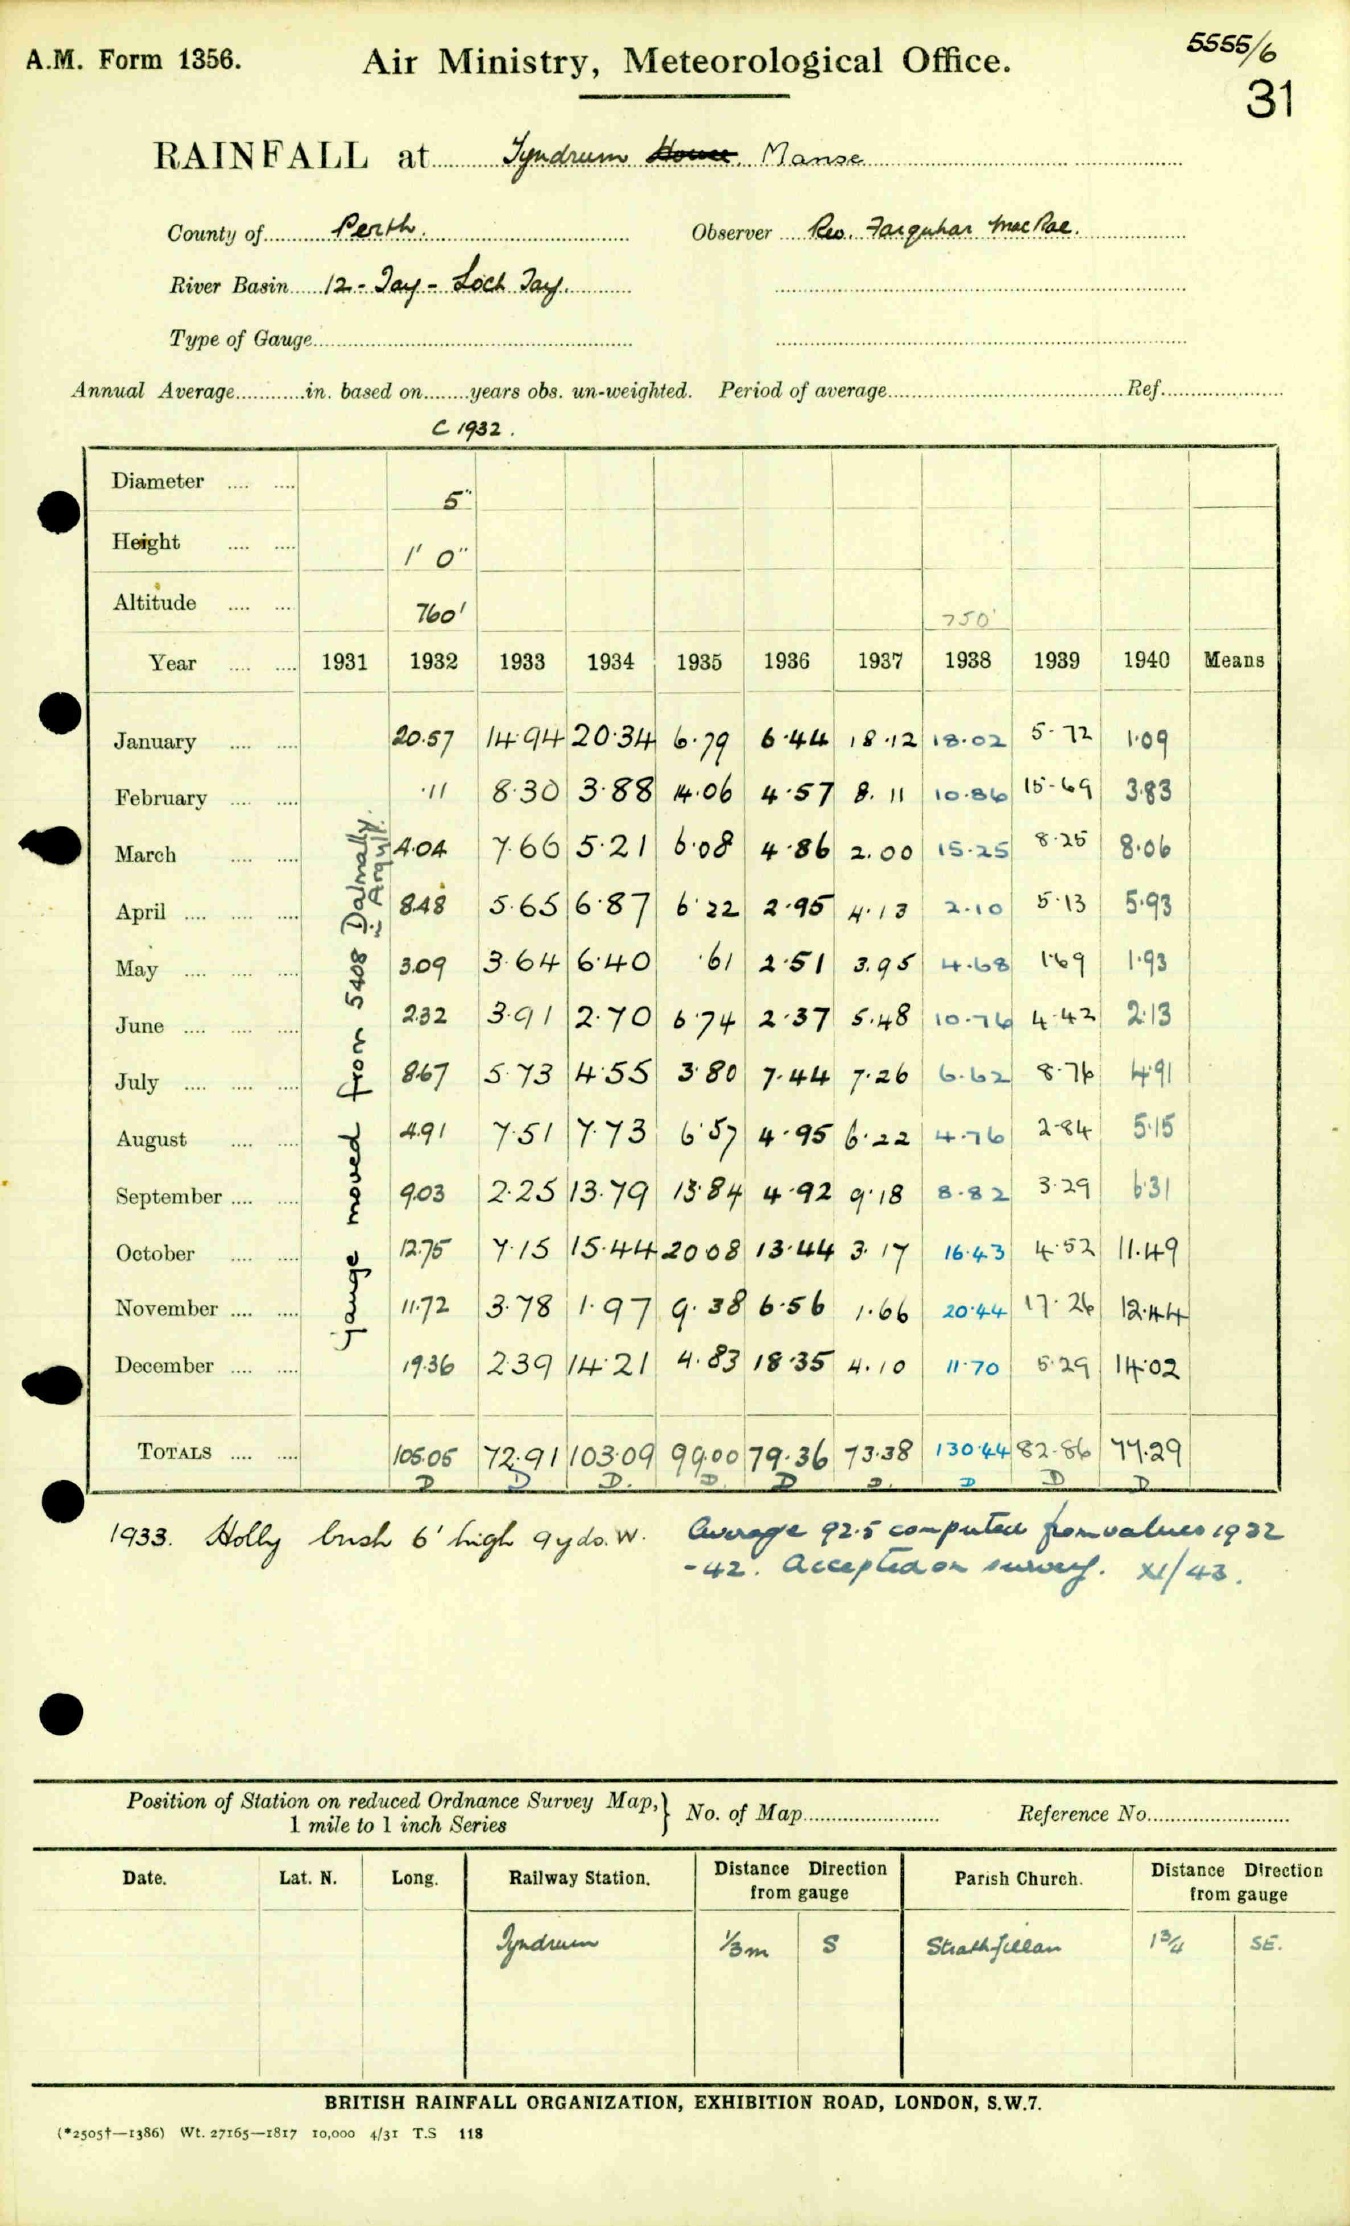 A.M. Form 1356.
Air Ministry, Meteorological Office.
5555/6
31
RAINFALL at Tyndrum House Manse
County of Perth.
Observer Rev. Farquhar MacRae.
River Basin 12 - Tay - Loch Tay.
Type of Gauge
Annual Average in. based on years obs. un-weighted. Period of average Ref.
C 1932.
Diameter 5"
Height 1' 0"
Altitude 760' 750'
Year 1931 1932 1933 1934 1935 1936 1937 1938 1939 1940 Means
January 20.57 14.94 20.34 6.79 6.44 18.12 18.02 5.72 1.09
February .11 8.30 3.88 14.06 4.57 8.11 10.86 15.69 3.83
March 4.04 7.66 5.21 6.08 4.86 2.00 15.25 8.25 8.06
April 8.48 5.65 6.87 6.22 2.95 4.13 2.10 5.13 5.93
May 3.09 3.64 6.40 .61 2.51 3.95 4.68 1.69 1.93
June 2.32 3.91 2.70 6.74 2.37 5.48 10.76 4.42 2.13
July 8.67 5.73 4.55 3.80 7.44 7.26 6.62 8.76 4.91
August 4.91 7.51 7.73 6.57 4.95 6.22 4.76 2.84 5.15
September 9.03 2.25 13.79 13.84 4.92 9.18 8.82 3.29 6.31
October 12.75 7.15 15.44 20.08 13.44 3.17 16.43 4.52 11.49
November 11.72 3.78 1.97 9.38 6.56 1.66 20.44 17.26 12.44
December 19.36 2.39 14.21 4.83 18.35 4.10 11.70 5.29 14.02
gauge moved from 5408 Dalmally
in Argyll.
TOTALS 105.05 72.91 103.09 99.00 79.36 73.38 130.44 82.86 77.29
D D D. D. D D. D D D
1933. Holly bush 6' high 9 yds. W.
Average 92.5 computed from values 1932
-42. Accepted on survey. XI/43.
Position of Station on reduced Ordnance Survey Map,
1 mile to 1 inch Series
No. of Map
Reference No.
Date. Lat. N. Long. Railway Station. Distance Direction from gauge Parish Church. Distance Direction from gauge
Tyndrum 1/3 m S Strathfillan 1 3/4 SE.
BRITISH RAINFALL ORGANIZATION, EXHIBITION ROAD, LONDON, S.W.7.
(*2505†—1386) Wt. 27165—1817 10,000 4/31 T.S 118